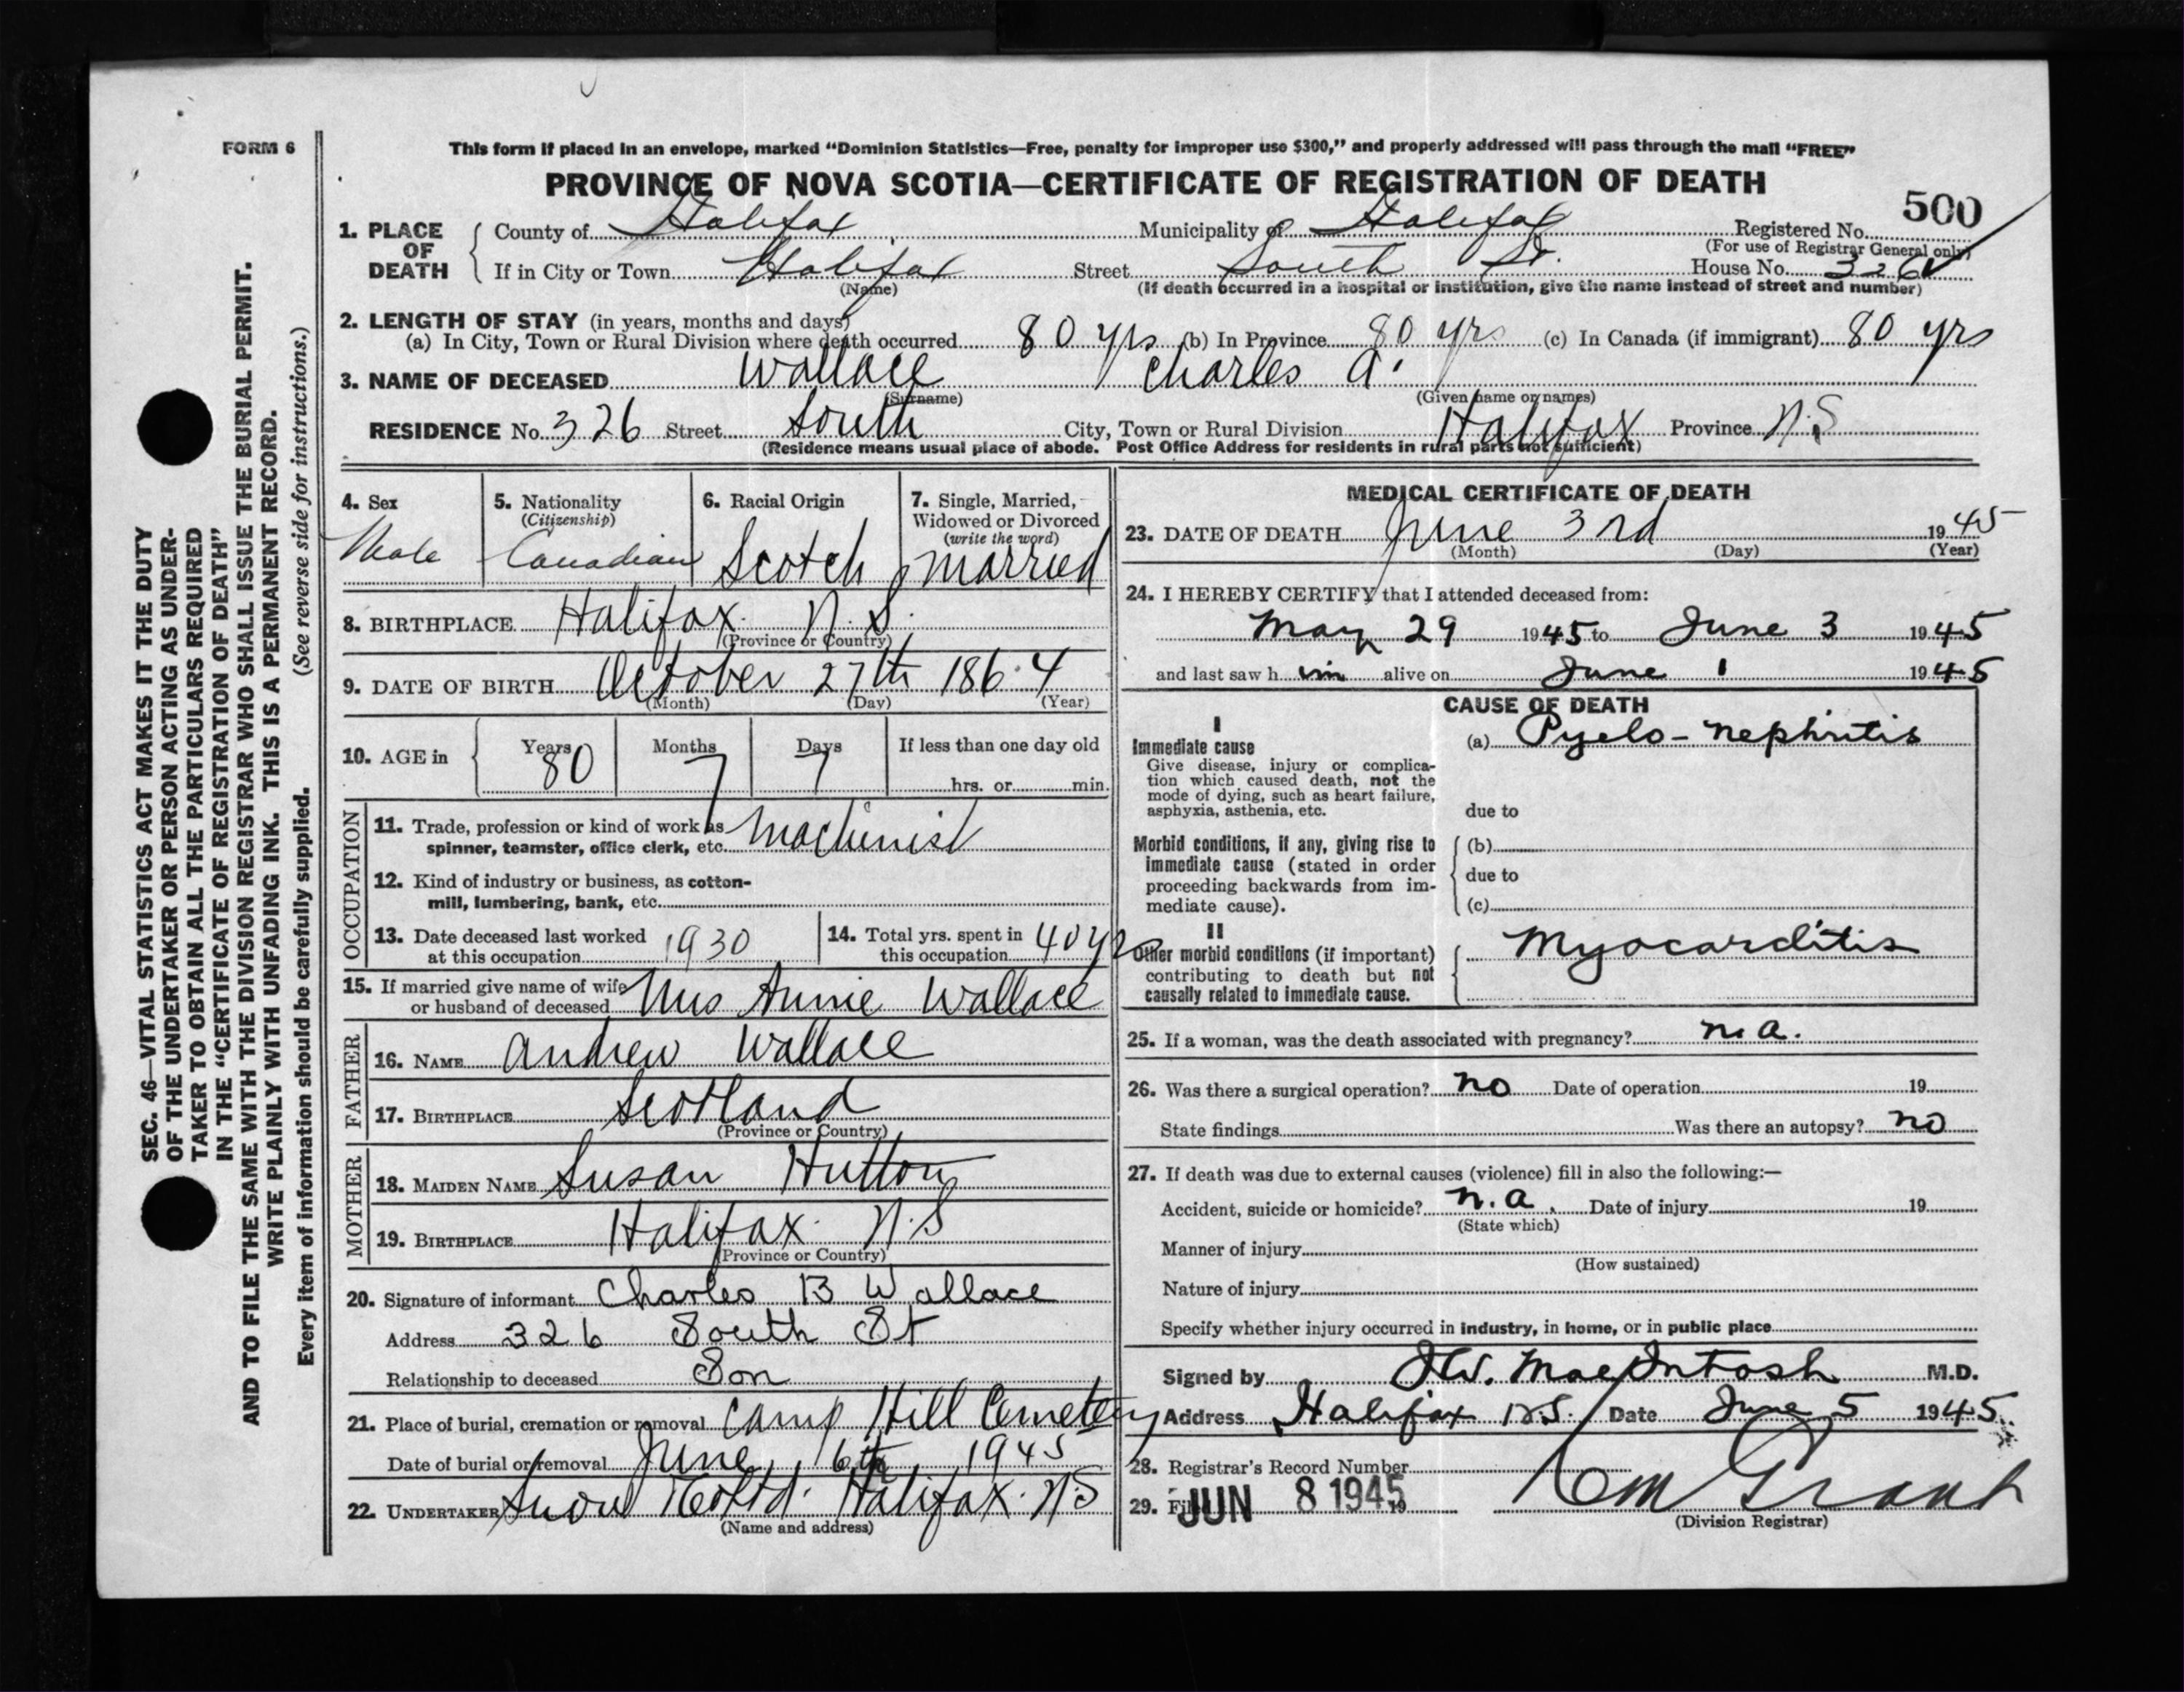 FORM 6
This form if placed in an envelope, marked “Dominion Statistics—Free, penalty for improper use $300,” and properly addressed will pass through the mail “FREE”
PROVINCE OF NOVA SCOTIA—CERTIFICATE OF REGISTRATION OF DEATH
500
1. PLACE OF DEATH
County of Halifax Municipality of Halifax Registered No.
(For use of Registrar General only)
If in City or Town Halifax Street South St. House No. 326
(Name) (If death occurred in a hospital or institution, give the name instead of street and number)
2. LENGTH OF STAY (in years, months and days)
(a) In City, Town or Rural Division where death occurred 80 yrs (b) In Province 80 yrs (c) In Canada (if immigrant) 80 yrs
3. NAME OF DECEASED Wallace Charles A.
(Surname) (Given name or names)
RESIDENCE No. 326 Street South City, Town or Rural Division Halifax Province N.S
(Residence means usual place of abode. Post Office Address for residents in rural parts not sufficient)
4. Sex
Male
5. Nationality
(Citizenship)
Canadian
6. Racial Origin
Scotch
7. Single, Married,
Widowed or Divorced
(write the word)
Married
8. BIRTHPLACE Halifax N.S.
(Province or Country)
9. DATE OF BIRTH October 27th 1864
(Month) (Day) (Year)
10. AGE in Years 80 Months 7 Days 7 If less than one day old
hrs. or min.
OCCUPATION
11. Trade, profession or kind of work as
spinner, teamster, office clerk, etc. Machinist
12. Kind of industry or business, as cotton-
mill, lumbering, bank, etc.
13. Date deceased last worked
at this occupation 1930
14. Total yrs. spent in
this occupation 40 yrs
15. If married give name of wife
or husband of deceased Mrs Annie Wallace
FATHER
16. NAME Andrew Wallace
17. BIRTHPLACE Scotland
(Province or Country)
MOTHER
18. MAIDEN NAME Susan Hutton
19. BIRTHPLACE Halifax N.S
(Province or Country)
20. Signature of informant Charles B Wallace
Address 326 South St
Relationship to deceased Son
21. Place of burial, cremation or removal Camp Hill Cemetery
Date of burial or removal June 6th 1945
22. UNDERTAKER Snow & Co Ltd. Halifax. N.S
(Name and address)
MEDICAL CERTIFICATE OF DEATH
23. DATE OF DEATH June 3rd 1945
(Month) (Day) (Year)
24. I HEREBY CERTIFY that I attended deceased from:
May 29 1945 to June 3 1945
and last saw h im alive on June 1 1945
CAUSE OF DEATH
I
Immediate cause
Give disease, injury or complica-
tion which caused death, not the
mode of dying, such as heart failure,
asphyxia, asthenia, etc.
(a) Pyelo-nephritis
due to
Morbid conditions, if any, giving rise to
immediate cause (stated in order
proceeding backwards from im-
mediate cause).
(b)
due to
(c)
II
Other morbid conditions (if important)
contributing to death but not
causally related to immediate cause.
Myocarditis
25. If a woman, was the death associated with pregnancy? n.a.
26. Was there a surgical operation? no Date of operation 19
State findings Was there an autopsy? no
27. If death was due to external causes (violence) fill in also the following:—
Accident, suicide or homicide? n.a. Date of injury 19
(State which)
Manner of injury
(How sustained)
Nature of injury
Specify whether injury occurred in industry, in home, or in public place
Signed by MacIntosh M.D.
Address Halifax N.S. Date June 5 1945
28. Registrar's Record Number
29. Filed JUN 8 1945 19
Grant
(Division Registrar)
SEC. 46—VITAL STATISTICS ACT MAKES IT THE DUTY
OF THE UNDERTAKER OR PERSON ACTING AS UNDER-
TAKER TO OBTAIN ALL THE PARTICULARS REQUIRED
IN THE “CERTIFICATE OF REGISTRATION OF DEATH”
AND TO FILE THE SAME WITH THE DIVISION REGISTRAR WHO SHALL ISSUE THE BURIAL PERMIT.
WRITE PLAINLY WITH UNFADING INK. THIS IS A PERMANENT RECORD.
Every item of information should be carefully supplied. (See reverse side for instructions.)